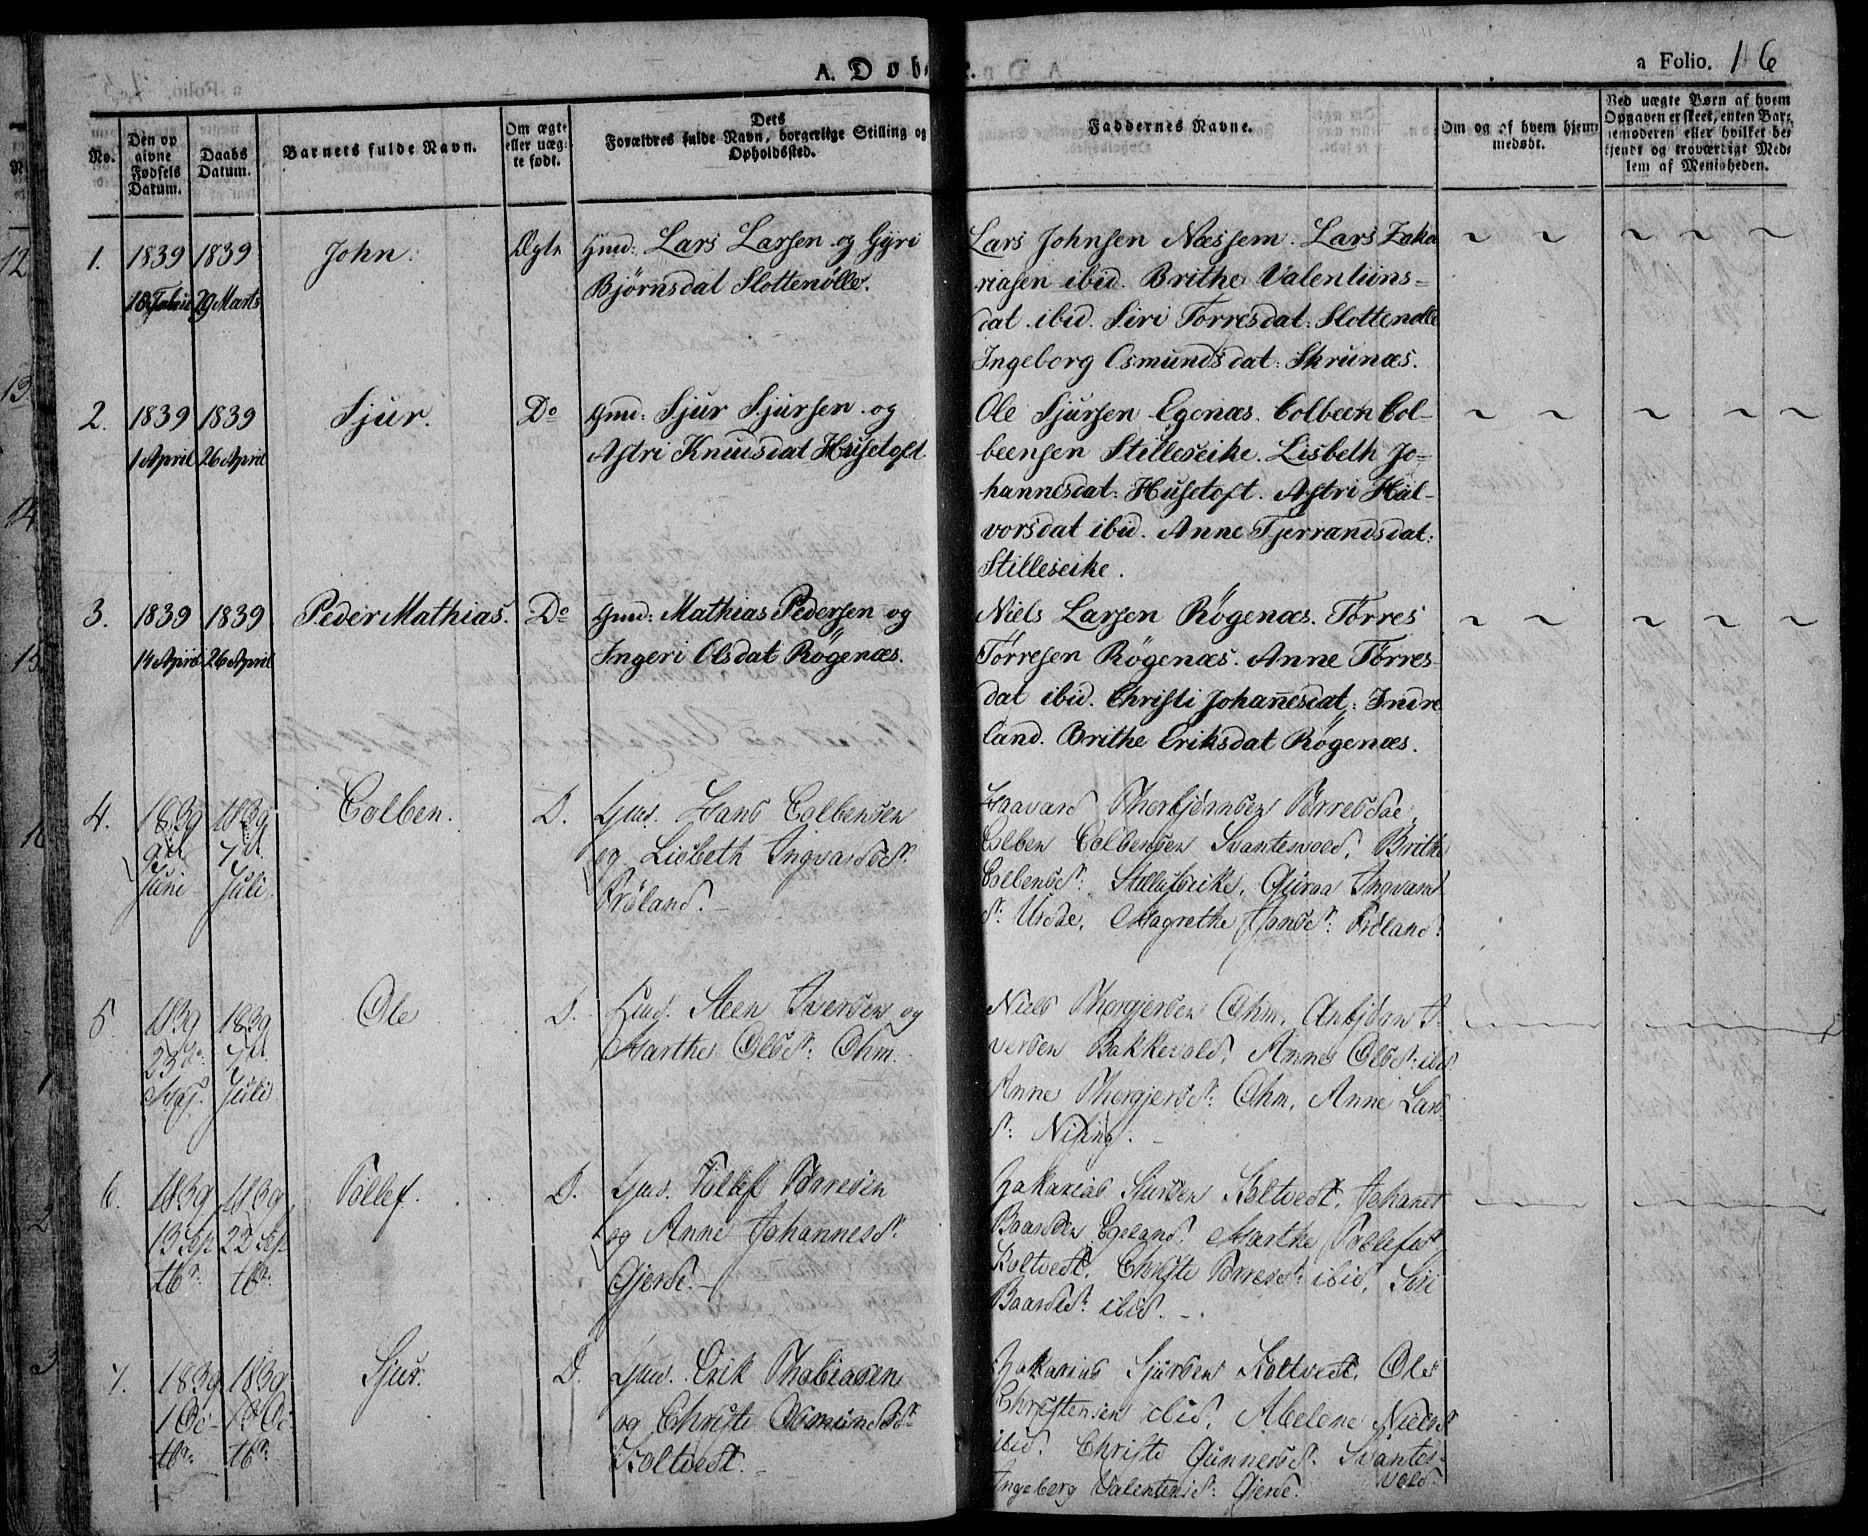 A. Døb
a Folio. 16
No.
Den op
givne
Fødsels
Datum.
Daabs
Datum.
Barnets fulde Navn.
Om ægte
eller uæg-
te født.
Dets
Forældres fulde Navn, borgerlige Stilling og
Opholdssted.
Faddernes Navne.
Om og af hvem hjem-
medøbt.
Ved uægte Børn af hvem
Opgaven er skeet, enten Bar-
nemoderen eller hvilket be-
kjendt og troværdigt Med-
lem af Menigheden.
1. 1839 1839 John. Ægte Gmd: Lars Larsen og Gyri
29 Marts Bjørnsdat Slottenølle.
Lars Johnsen Næssem. Lars Zaka
riasen ibid. Brithe Valentiins-
dat ibid. Siri Torresdat: Slottenølle
Ingeborg Osmundsdat: Skrunæs.
2. 1839 1839 Sjur. Do Gmd: Sjur Sjursen og
1 April 26 April Astri Knudsdat Husetoft.
Ole Sjursen Egenæs. Colbeen Col-
beensen Stilleseike. Lisbeth Jo-
hannisdat: Husetoft. Astri Hal-
vorsdat ibid. Anne Tjerrandsdat:
Stilleseike.
3. 1839 1839 Peder Mathias. Do Gmd: Mathias Pedersen og
14 April 26 April Ingeri Olsdat Røgenæs.
Niels Larsen Røgenæs. Tørres
Tørresen Røgenæs. Anne Tørres-
dat ibid. Christi Johan̄esdat: Indre
land. Brithe Eriksdat Røgenæs.
4. 1839 1839 Colben. D. Gmd. Hans Colbensen
9d 7d og Lisbeth Ingvardsdr.
Juni Juli Frøland.
Haavard Thorbjørnsen Tørresdae,
Colben Colbensen Svantevold, Brithe
Colbensdr: Stilleseike, Guroe Ingvard
dr: Uredae, Magrethe Hansdr: Frøland.
5. 1839 1839 Ole D. Gmd. Steen Iversen og
23de 7d Marthe Olsdr: Ohm.
Maj. Juli
Niels Thorgjersen Ohm, Anbjørn I-
versen Bakkevold, Anne Olsdr: ibid
Anne Thorgjersdr: Ohm, Anne Lars
dr: Nising.
6. 1839 1839 Tollef. D. Gmd. Tollef Tørresen
13 Sep 22 Sep og Anne Johannesdr.
tbr. tbr. Gjerde.
Zakarias Sjursen Koltvedt, Johanes
Baardsen Egeland, Marthe Tollefsdr
Koltvedt, Christi Tørresdr: ibid, Siri
Baardsdr: ibid.
7. 1839 1839 Sjur. D. Gmd. Erik Thobiasen
1 Oc- 13 Oc- og Christi Osmundsdr:
tbr: tbr: Koltvedt.
Zakarias Sjursen Koltvedt, Ole
Christensen ibid, Abelone Nielsdr
ibid. Christi Gunnersdr. Svantes-
vold
Ingeborg Valentinsdr: Gjerde.